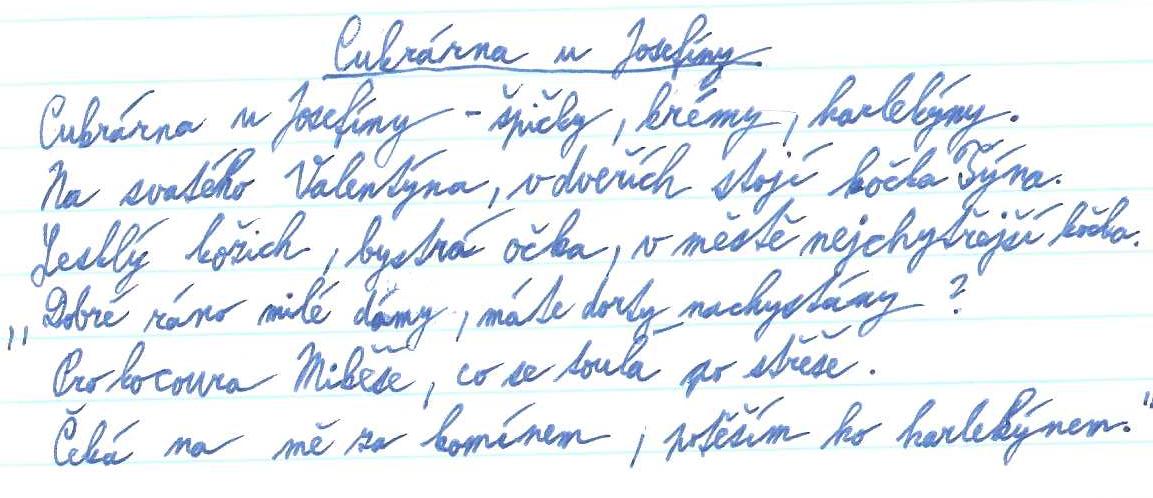 Cukrárna u Josefíny
Cukrárna u Josefíny - špičky, krémy, harlekýny.
Na svatého Valentýna, v dveřích stojí kočka Týna.
Lesklý kožich, bystrá očka, v městě nejchytřejší kočka.
„Dobré ráno milé dámy, máte dorty nachystány?
Pro kocoura Mikeše, co se toulá po střeše.
Čeká na mě za komínem, potěším ho harlekýnem.“